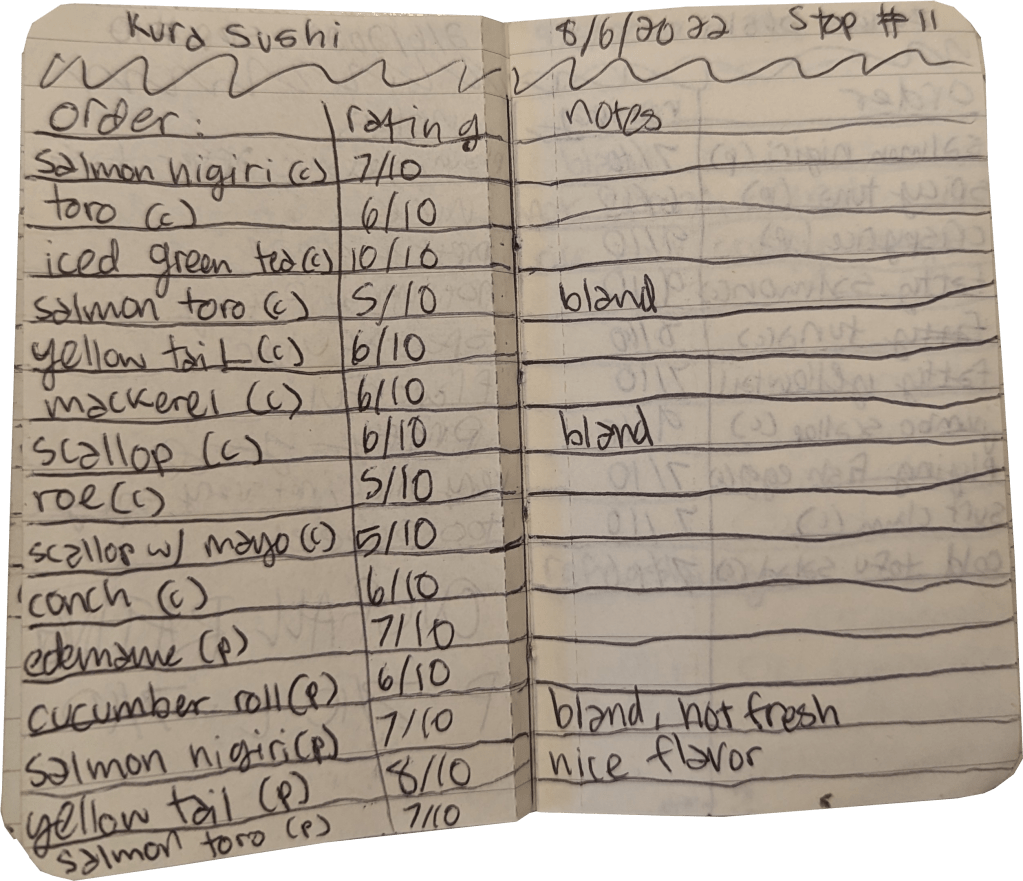 Kura Sushi 8/6/2022 Stop #11
order: rating notes
salmon nigiri (c) 7/10
toro (c) 6/10
iced green tea (c) 10/10
salmon toro (c) 5/10 bland
yellow tail (c) 6/10
mackerel (c) 6/10
scallop (c) 6/10 bland
roe (c) 5/10
scallop w/ mayo (c) 5/10
conch (c) 6/10
edemame (p) 7/10
cucumber roll (p) 6/10
salmon nigiri (p) 7/10 bland, not fresh
yellow tail (p) 8/10 nice flavor
salmon toro (p) 7/10